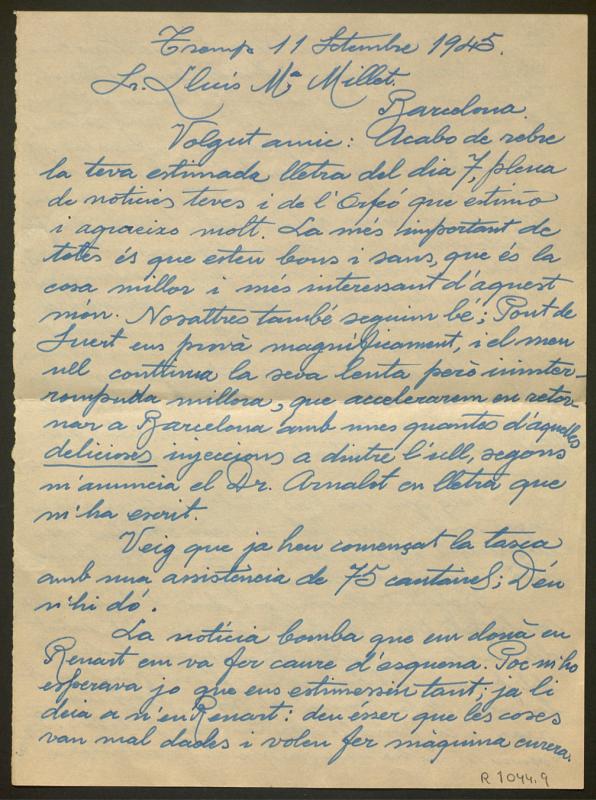 Tremp 11 Setembre 1945.
Sr. Lluís Mª Millet.
Barcelona.
Volgut amic: Acabo de rebre
la teva estimada lletra del dia 7, plena
de noticies teves i de l'Orfeó que estimo
i agraeixo molt. La més important de
totes és que esteu bons i sans, que és la
cosa millor i més interessant d'aquest
món. Nosaltres també seguim bé; Pont de
Suert ens provà magníficament, i el meu
ull continua la seva lenta però ininter-
rompuda millora, que accelerarem en retor-
nar a Barcelona amb unes quantes d'aquelles
delicioses injeccions a dintre l'ull, segons
m'anuncia el Dr. Arnalot en lletra que
m'ha escrit.
Veig que ja heu començat la tasca
amb una assistència de 75 cantaires; Déu
n'hi dó.
La notícia bomba que em donà en
Renart em va fer caure d'esquena. Poc m'ho
esperava jo que ens estimessin tant; ja li
deia a n'en Renart: deu ésser que les coses
van mal dades i volen fer màquina enrera.
R 1044.9